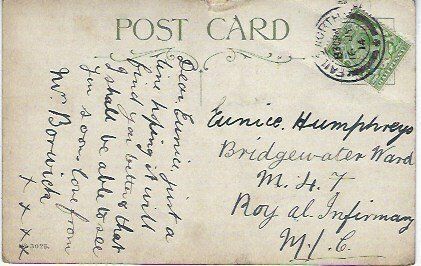 POST CARD
Dear Eunice, just a
line hoping it will
find you better & that
I shall be able to see
you soon. love from
Mrs. Borwick
x x x x
Eunice. Humphreys
Bridgewater Ward
M. 4. 7
Royal Infirmary
M/C.
3025.